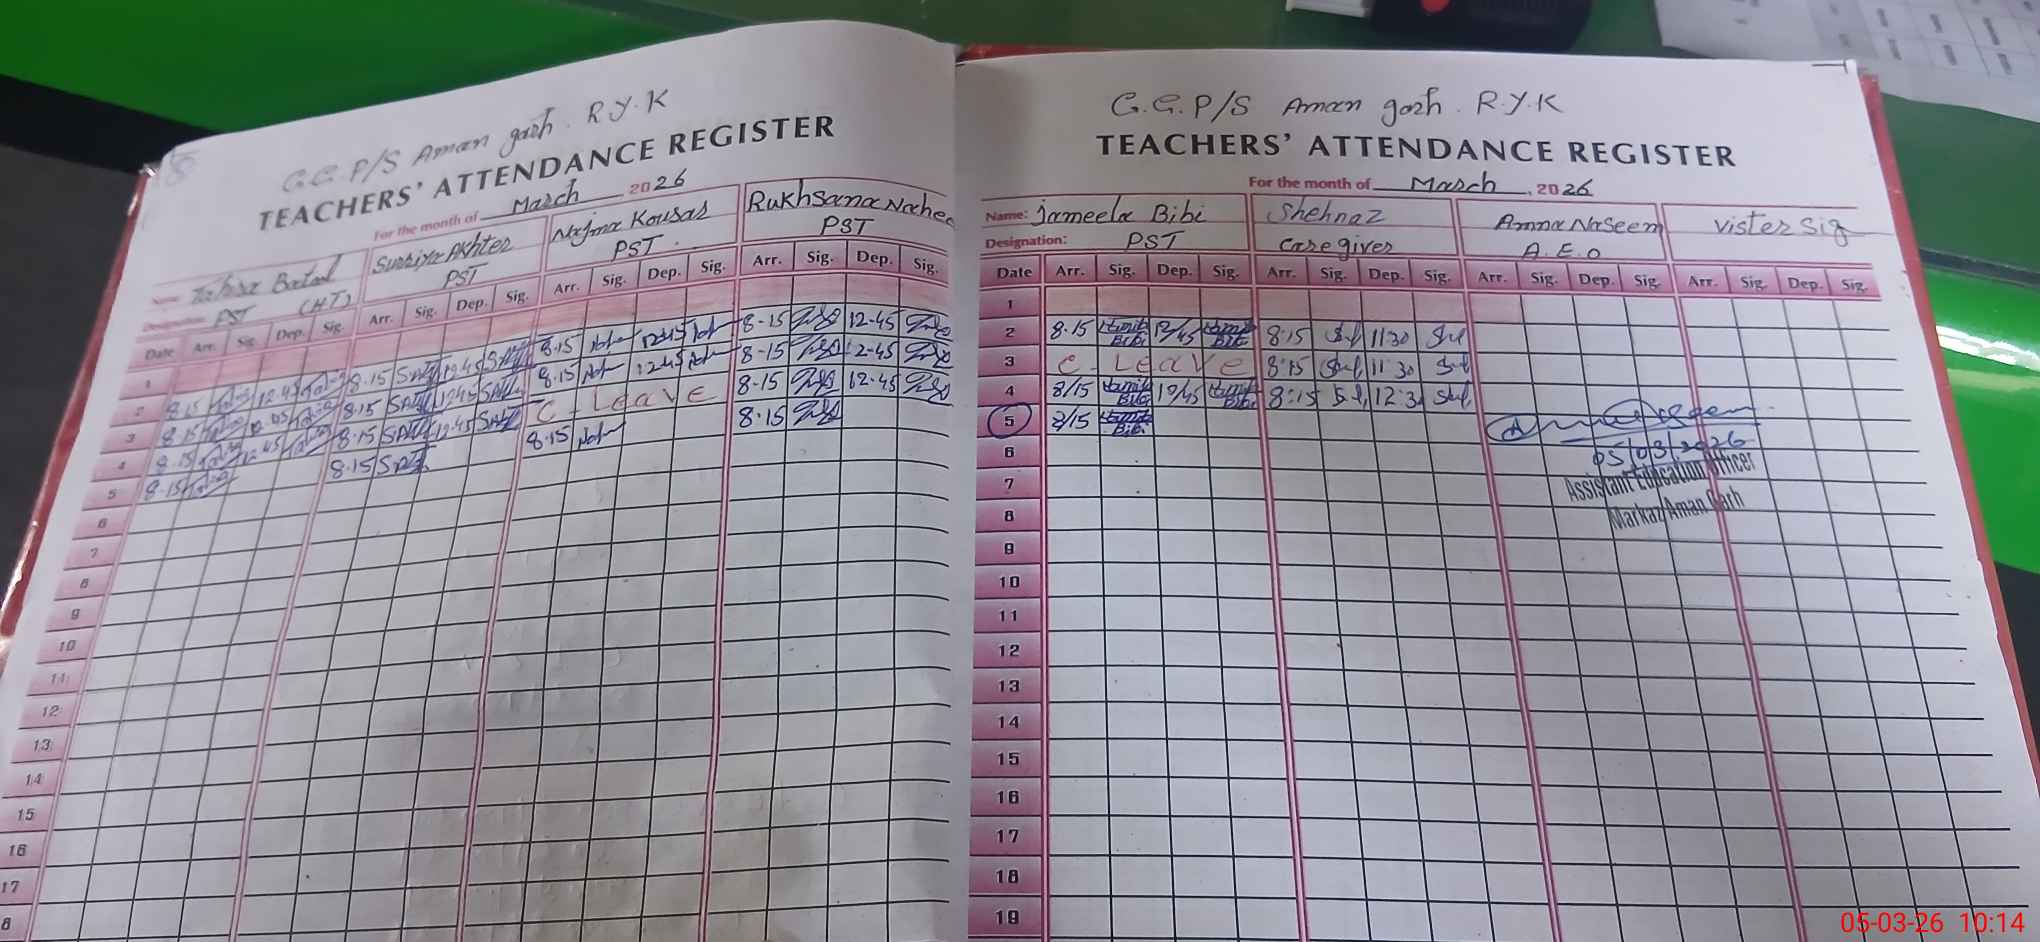 G.G.P/S Aman garh. R.Y.K
TEACHERS' ATTENDANCE REGISTER
For the month of March, 2026
Name: Tahira Batool Surriya Akhter Najma Kousar Rukhsana Nahee
Designation: PST (H.T) PST PST PST
Date Arr. Sig. Dep. Sig. Arr. Sig. Dep. Sig. Arr. Sig. Dep. Sig. Arr. Sig. Dep. Sig.
1
2 8.15 12.45 8.15 12.45 8.15 12.45 8-15 12-45
3 8.15 8.15 12.45 8.15 12.45 8-15 12-45
4 8.15 12.45 8.15 12.45 C - Leave 8-15 12-45
5 8.15 8.15 8.15 8.15
6
7
8
9
10
11
12
13
14
15
16
17
8
G.G.P/S Aman garh. R.Y.K
TEACHERS' ATTENDANCE REGISTER
For the month of March, 2026
Name: Jameela Bibi Shehnaz Amna Naseem Vister Sig
Designation: PST Caregiver A.E.O
Date Arr. Sig. Dep. Sig. Arr. Sig. Dep. Sig. Arr. Sig. Dep. Sig. Arr. Sig. Dep. Sig.
1
2 8.15 Bibi 12/45 Bibi 8:15 11:30
3 C - Leave 8:15 11:30
4 8/15 Bibi 12/45 Bibi 8:15 12:30
5 8/15 Bibi
05/03/2026
6
Assistant Education Officer
7
Markaz Aman Garh
8
9
10
11
12
13
14
15
16
17
18
19
05-03-26 10:14